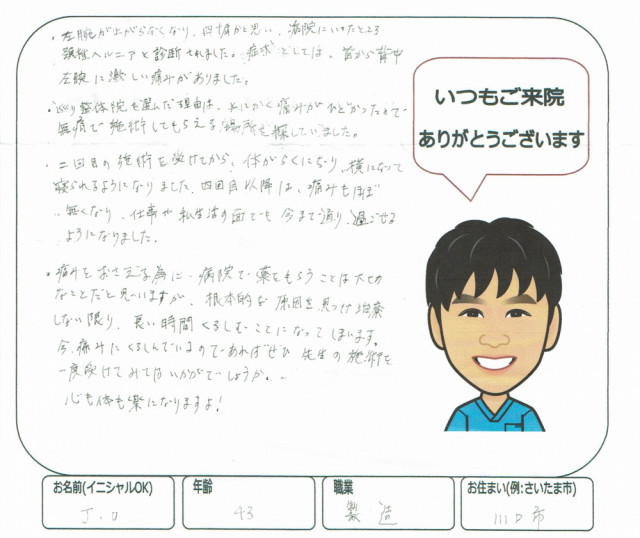 ・左腕が上がらなくなり、四十肩かと思い、病院にいったところ
頚椎ヘルニアと診断されました。症状としては、首から背中
左腕に激しい痛みがありました。
・巡り整体院を選んだ理由は、とにかく痛みがひどかったので
無痛で施術してもらえる場所を探していました。
・二回目の施術を受けてから、体がらくになり、横になって
寝られるようになりました。四回目以降は、痛みもほぼ
無くなり、仕事や私生活の面でも今まで通り、過ごせる
ようになりました。
・痛みをおさえる為に、病院で薬をもらうことは大切
なことだと思いますが、根本的な原因を見つけ治療
しない限り、長い時間くるしむことになってしまいます。
今、痛みにくるしんでいるのであればぜひ先生の施術を
一度受けてみてはいかがでしょうか。
心も体も楽になりますよ!
いつもご来院
ありがとうございます
お名前(イニシャルOK)
J.O
年齢
43
職業
製造
お住まい(例:さいたま市)
川口市